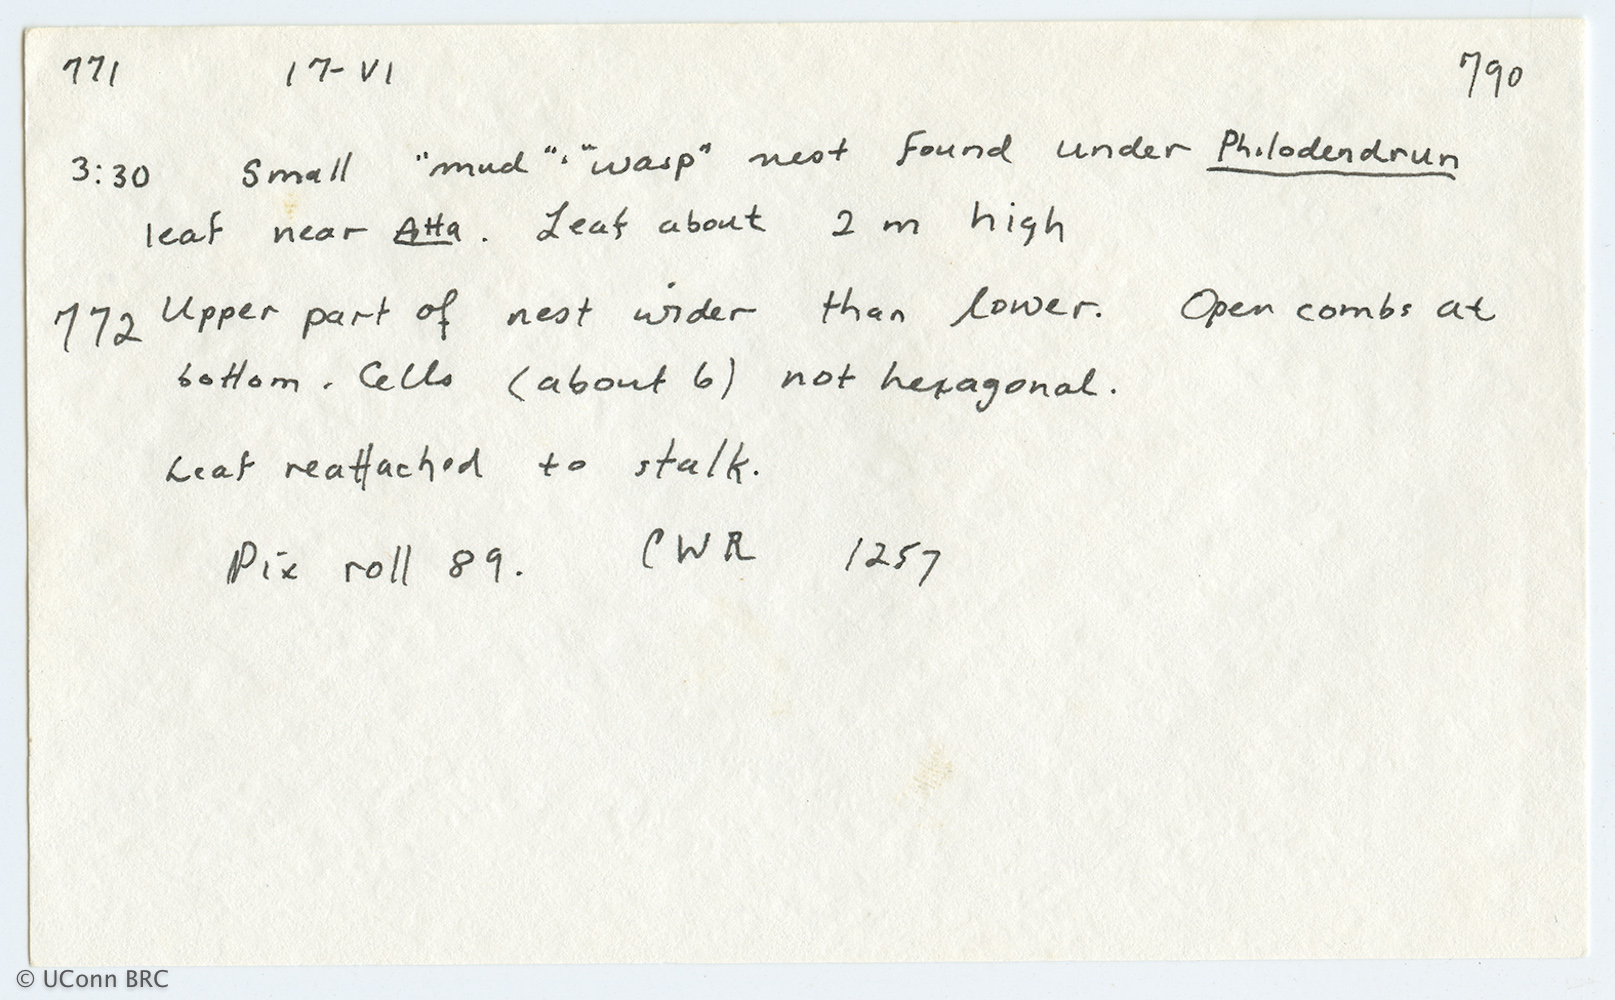 771 17-VI 790
3:30 Small "mud"-"wasp" nest found under Philodendrun
leaf near Atta. Leaf about 2 m high
772 Upper part of nest wider than lower. Open combs at
bottom. Cells (about 6) not hexagonal.
Leaf reattached to stalk.
Pix roll 89. CWR 1257
© UConn BRC